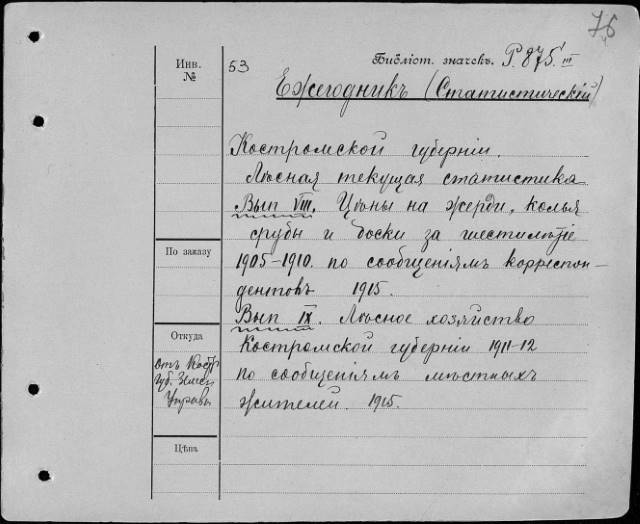 76
Инв. №
53
Библіот. значекъ. P. 875 III
Ежегодникъ (Статистическій)
Костромской губерніи.
Лѣсная текущая статистика
Вып VIII. Цѣны на жерди, колья
срубы и доски за шестилѣтіе
1905-1910. по сообщеніямъ корреспон-
дентовъ 1915.
Вып IX. Лѣсное хозяйство
Костромской губерніи 1911-12
по сообщеніямъ мѣстныхъ
жителей. 1915.
По заказу
Откуда
отъ Костр
губ. Земск
Управы
Цѣна